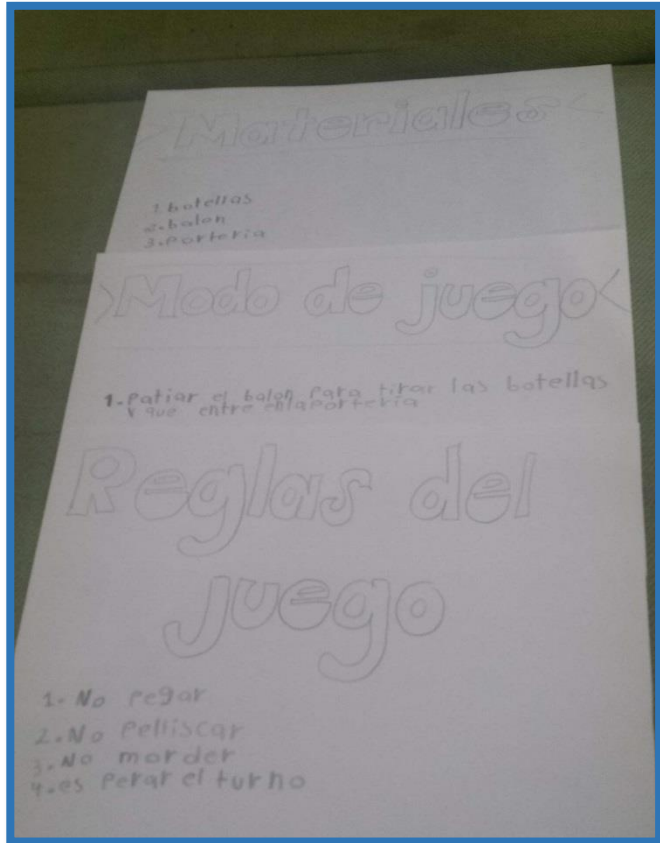 >Materiales<
1. botellas
2. balon
3. Porteria
>Modo de juego<
1- Patiar el balon Para tirar las botellas
y que entre enlaportería
Reglas del
juego
1- No pegar
2. No Pelliscar
3. No morder
4. es perar el turno